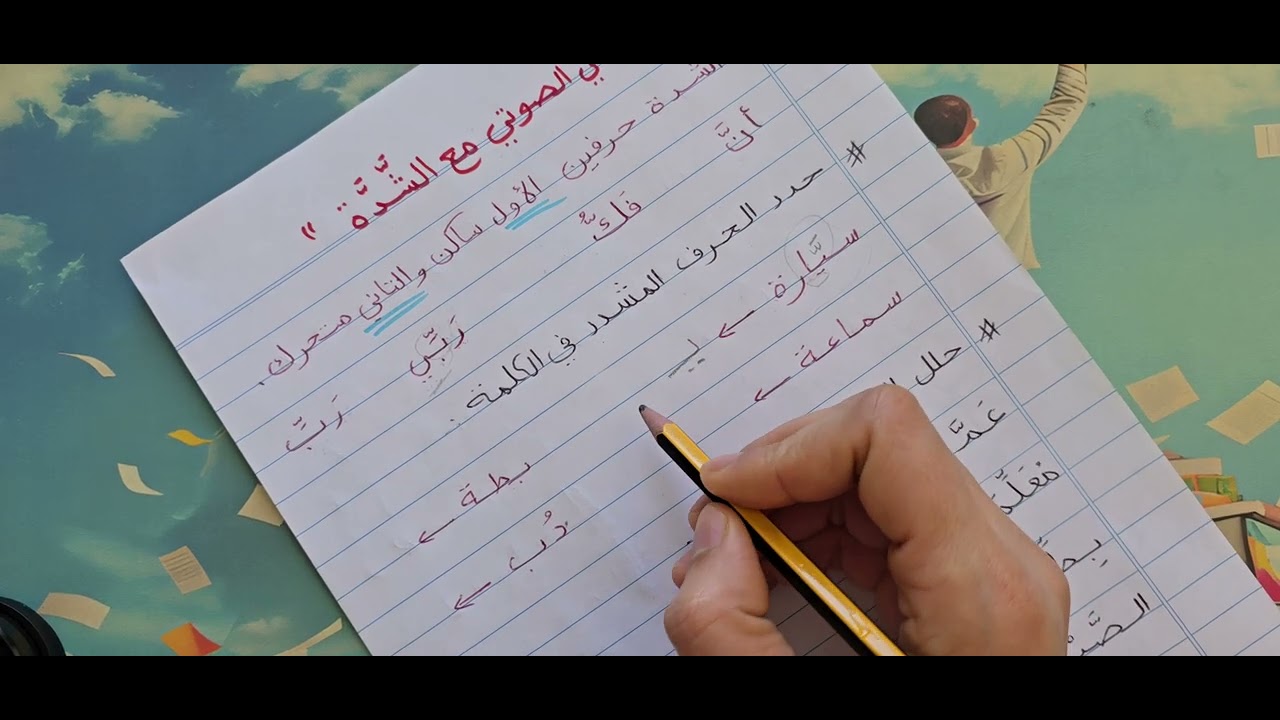 ي الصوتي مع الشَّدَّة "
الشدة حرفين الأول ساكن والثاني متحرك.
أنَّ فَكُّ رَبِّي رَبِّ
# حدد الحرف المشدد في الكلمة.
سيَّارة ← يـ بطة ←
سماعة ← دُب ←
# حلل
عَمَّـ
مُعَلِّمـ
الصَّـ